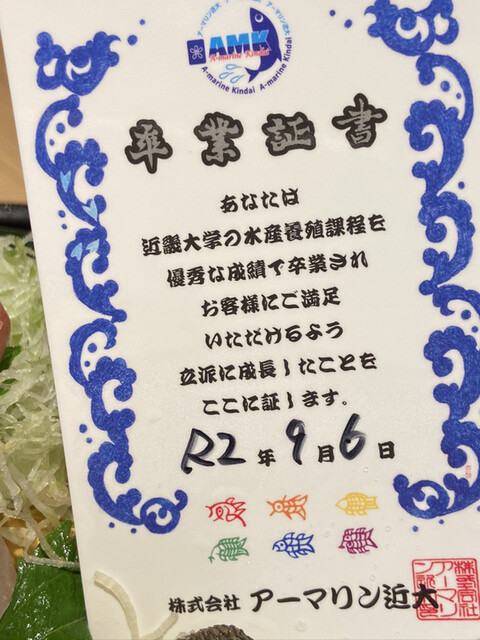 アーマリン近大 アーマリン近大
AMK
A-marine Kindai
A-marine Kindai A-marine Kindai
卒業証書
あなたは
近畿大学の水産養殖課程を
優秀な成績で卒業され
お客様にご満足
いただけるよう
立派に成長したことを
ここに証します。
R2年9月6日
株式会社 アーマリン近大
株式会社
アーマリ